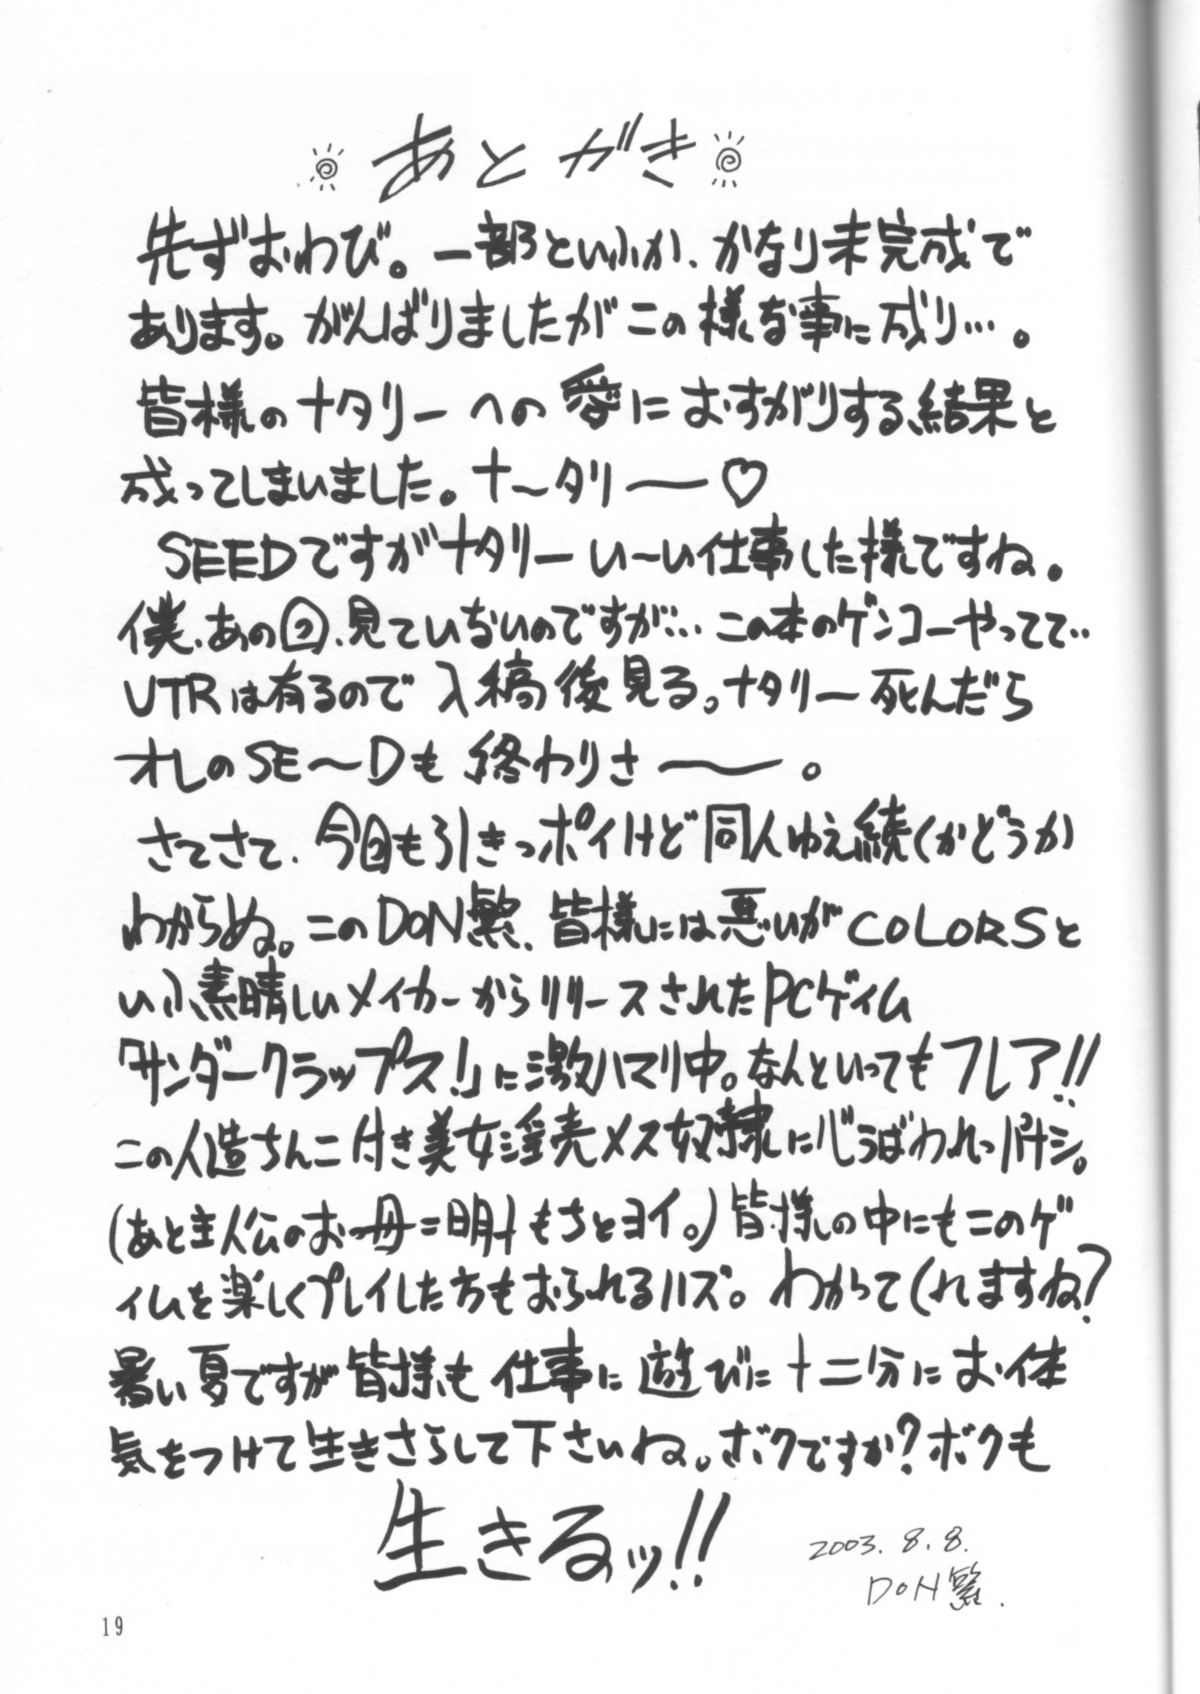 あとがき
先ずおわび。一部といふか、かなり未完成で
あります。がんばりましたがこの様な事に成り…。
皆様のナタリーへの愛におすがりする結果と
成ってしまいました。ナ〜タリー♡
SEEDですがナタリーい〜い仕事した様ですね。
僕、あの回、見ていないのですが…この本のゲンコーやってて‥
VTRは有るので入稿後見る。ナタリー死んだら
オレのSE〜Dも終わりさ〜。
さてさて、今回も引きっポイけど同人ゆえ続くかどうか
わからぬ。このDON繁、皆様には悪いがCOLORSと
いふ素晴しいメイカーからリリースされたPCゲイム
「サンダークラップス!」に激ハマリ中。なんといってもフレア!!
この人造ちんこ付き美女淫売メス奴隷に心うばわれっパナシ。
(あと主人公のお母=明もちとヨイ。)皆様の中にもこのゲ
イムを楽しくプレイした方もおられるハズ。わかってくれますね?
暑い夏ですが皆様も仕事に遊びに十二分にお体
気をつけて生きさらして下さいね。ボクですか?ボクも
生きるッ!!
2003.8.8.
DON繁.
19